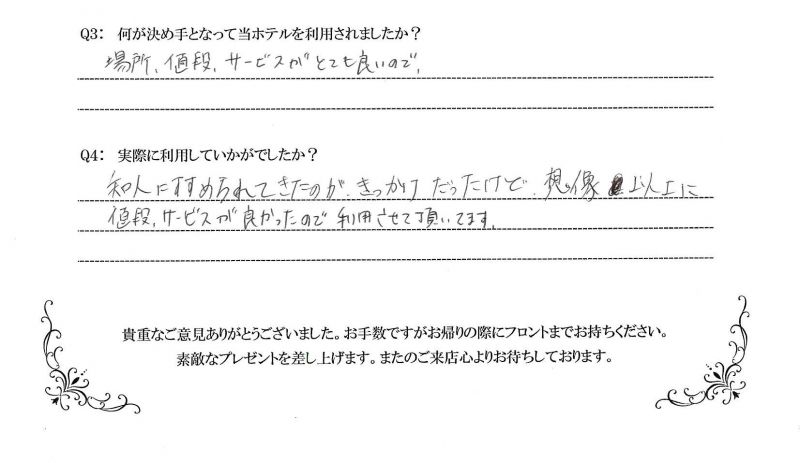 Q3： 何が決め手となって当ホテルを利用されましたか？
場所、値段、サービスがとても良いので、
Q4： 実際に利用していかがでしたか？
知人にすすめられてきたのが、きっかけだったけど、想像以上に
値段、サービスが良かったので利用させて頂いてます。
貴重なご意見ありがとうございました。お手数ですがお帰りの際にフロントまでお持ちください。
素敵なプレゼントを差し上げます。またのご来店心よりお待ちしております。